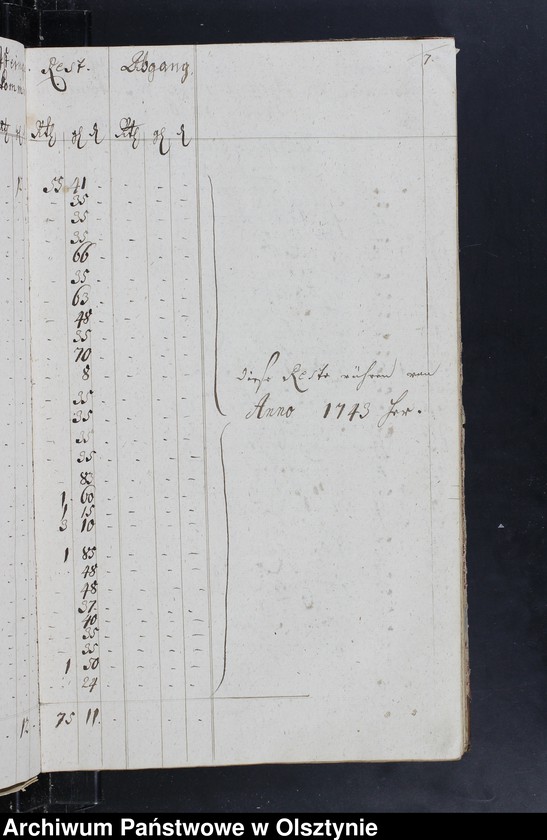 7.
Rest. Abgang.
Rth gl ₰ Rth gl ₰
55 41 - - - -
- 35 - - - -
- 35 - - - -
- 35 - - - -
- 66 - - - -
- 35 - - - -
- 63 - - - -
- 48 - - - -
- 35 - - - -
- 70 - - - -
- 8 - - - -
- 35 - - - -
- 35 - - - -
- 35 - - - -
- 35 - - - -
- 83 - - - -
1 60 - - - -
1 15 - - - -
3 10 - - - -
1 85 - - - -
- 48 - - - -
- 48 - - - -
- 37 - - - -
- 40 - - - -
- 35 - - - -
- 35 - - - -
1 50 - - - -
- 24 - - - -
75 11 - - - -
Diese Reste rühren von
Anno 1743 her.
Archiwum Państwowe w Olsztynie